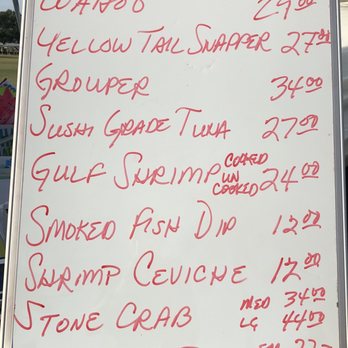 WAHOO 29.00
YELLOW TAIL SNAPPER 27.00
GROUPER 34.00
SUSHI GRADE TUNA 27.00
GULF SHRIMP COOKED UN COOKED 24.00
SMOKED FISH DIP 12.00
SHRIMP CEVICHE 12.00
STONE CRAB MED 34.00
LG 44.00